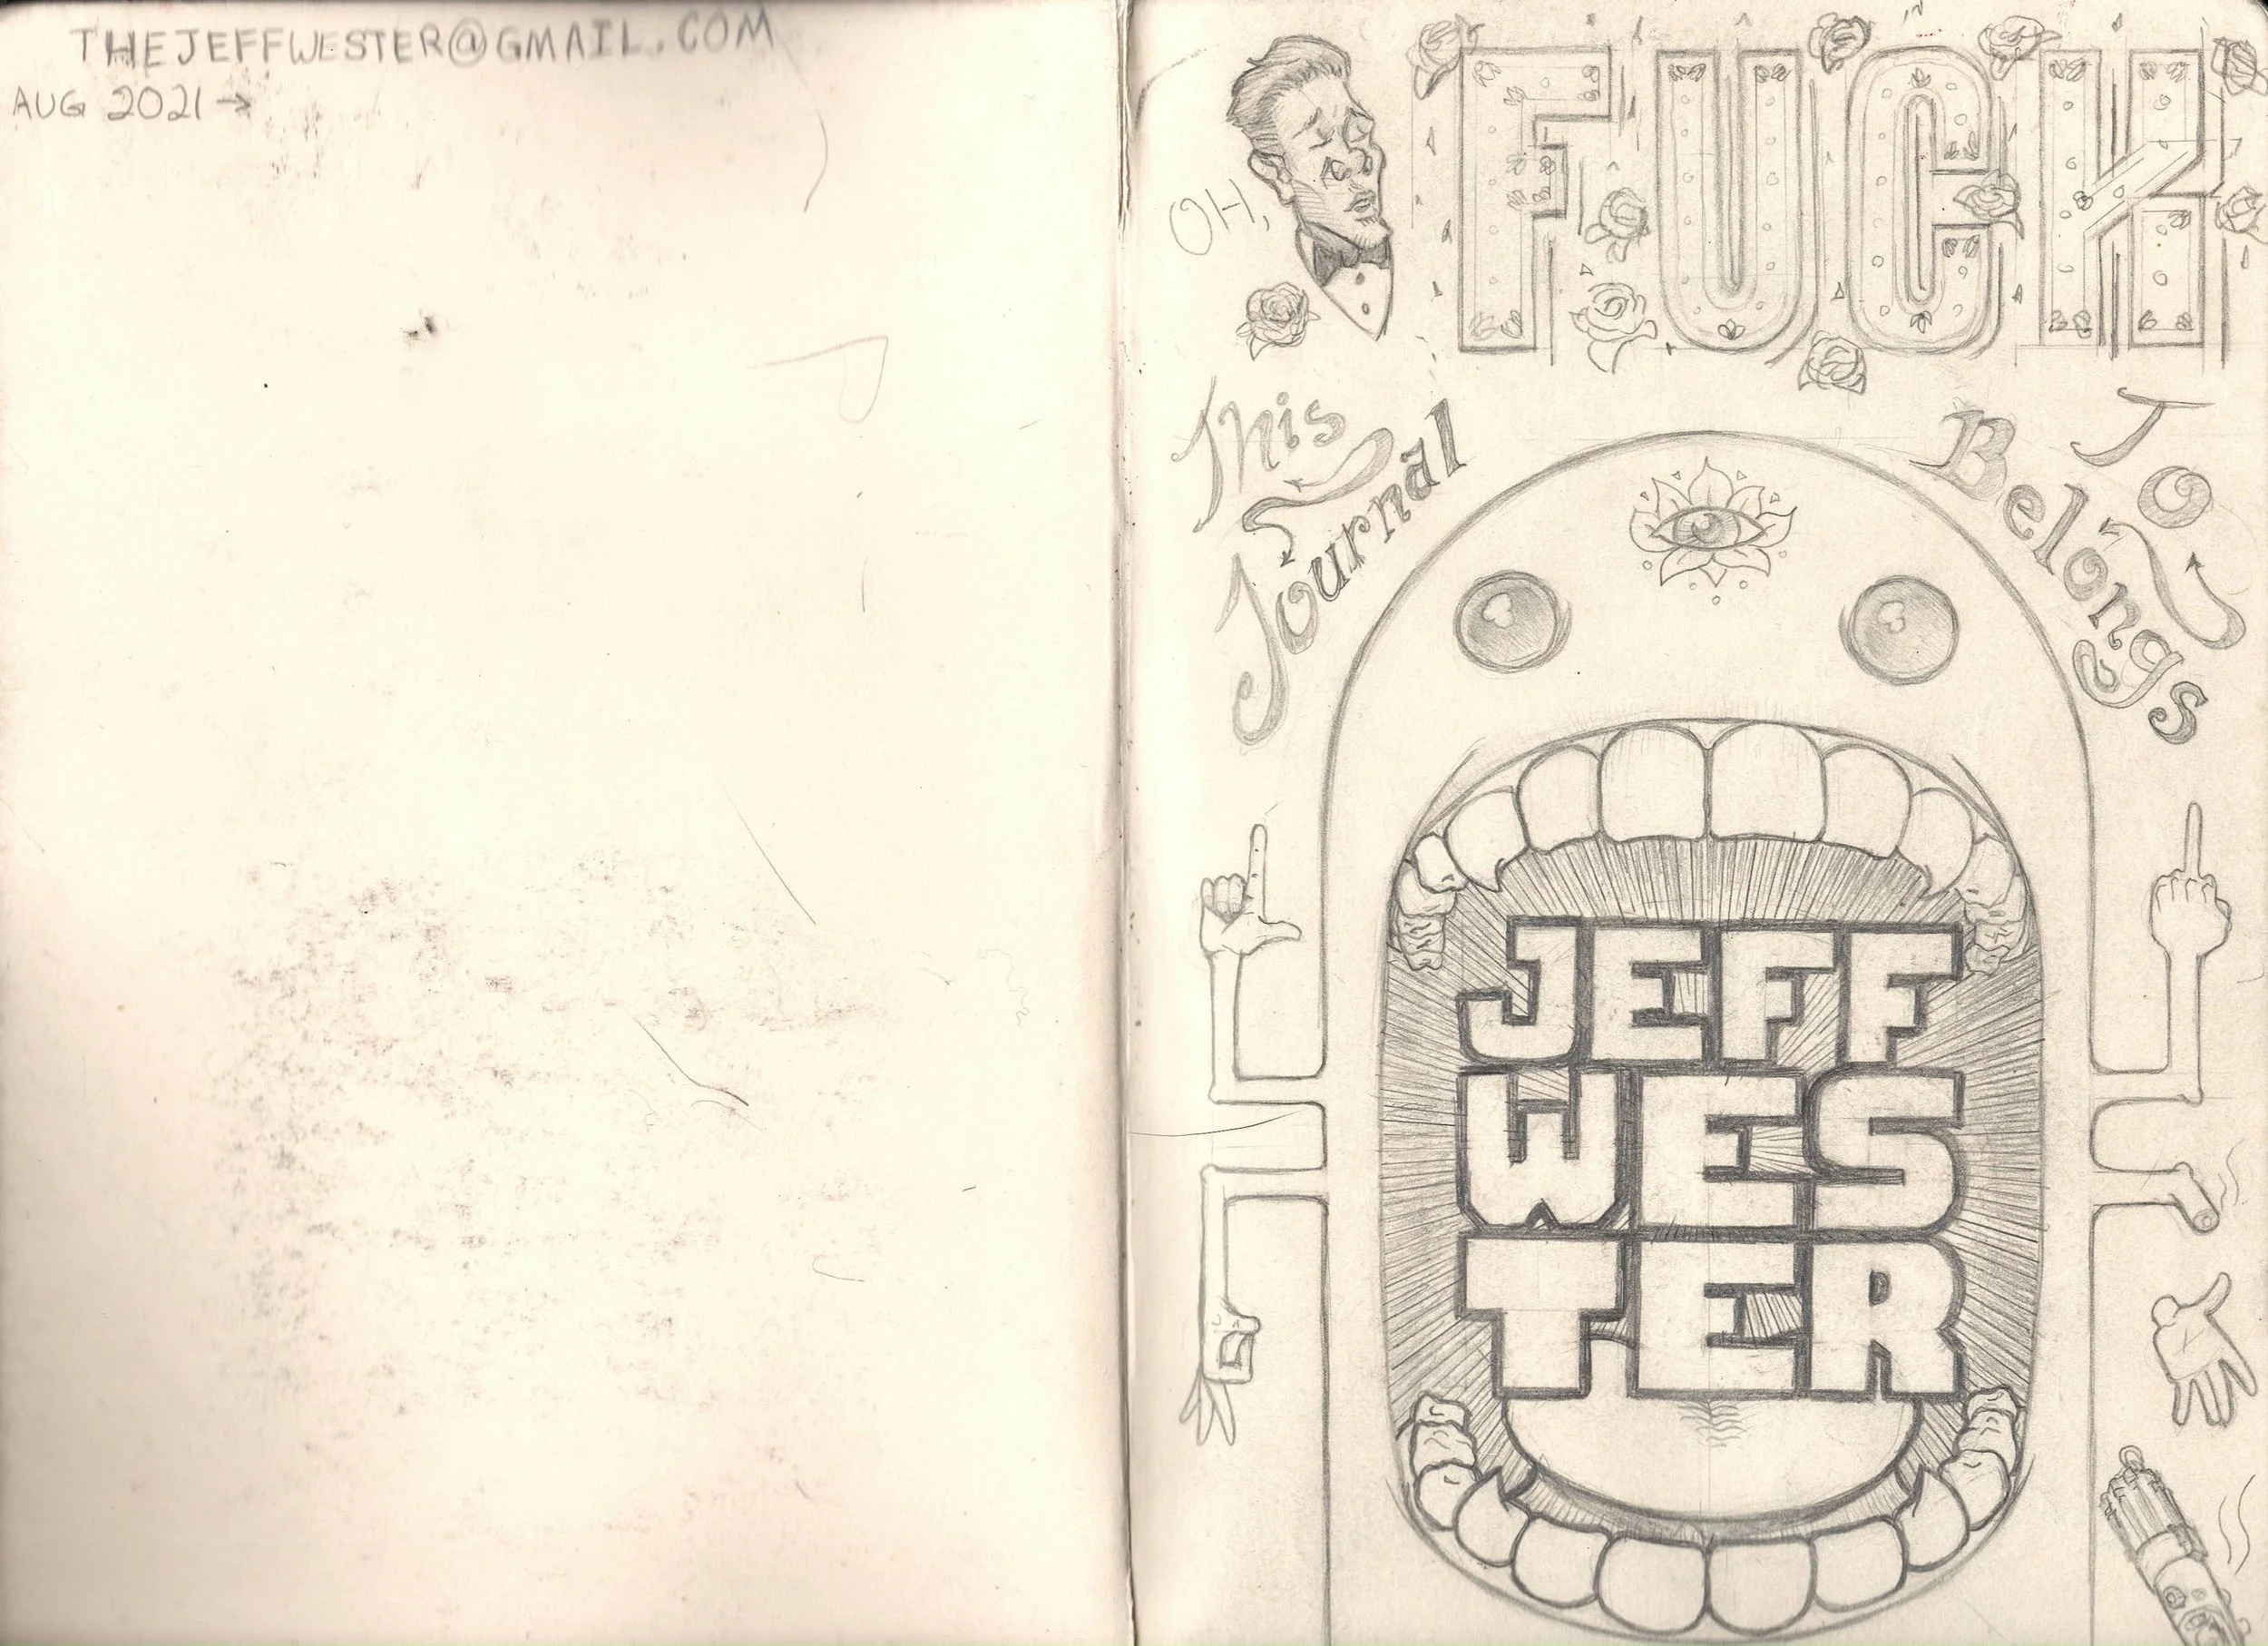 THEJEFFWESTER@GMAIL.COM
AUG 2021→
OH,
FUCK
This
Journal
Belongs
To
JEFF
WES
TER